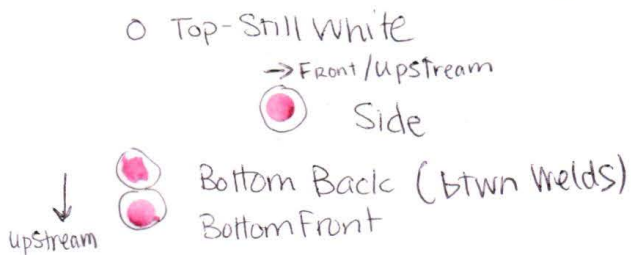 Top-Still White
→Front/Upstream
Side
Bottom Back (btwn Welds)
Bottom Front
Upstream